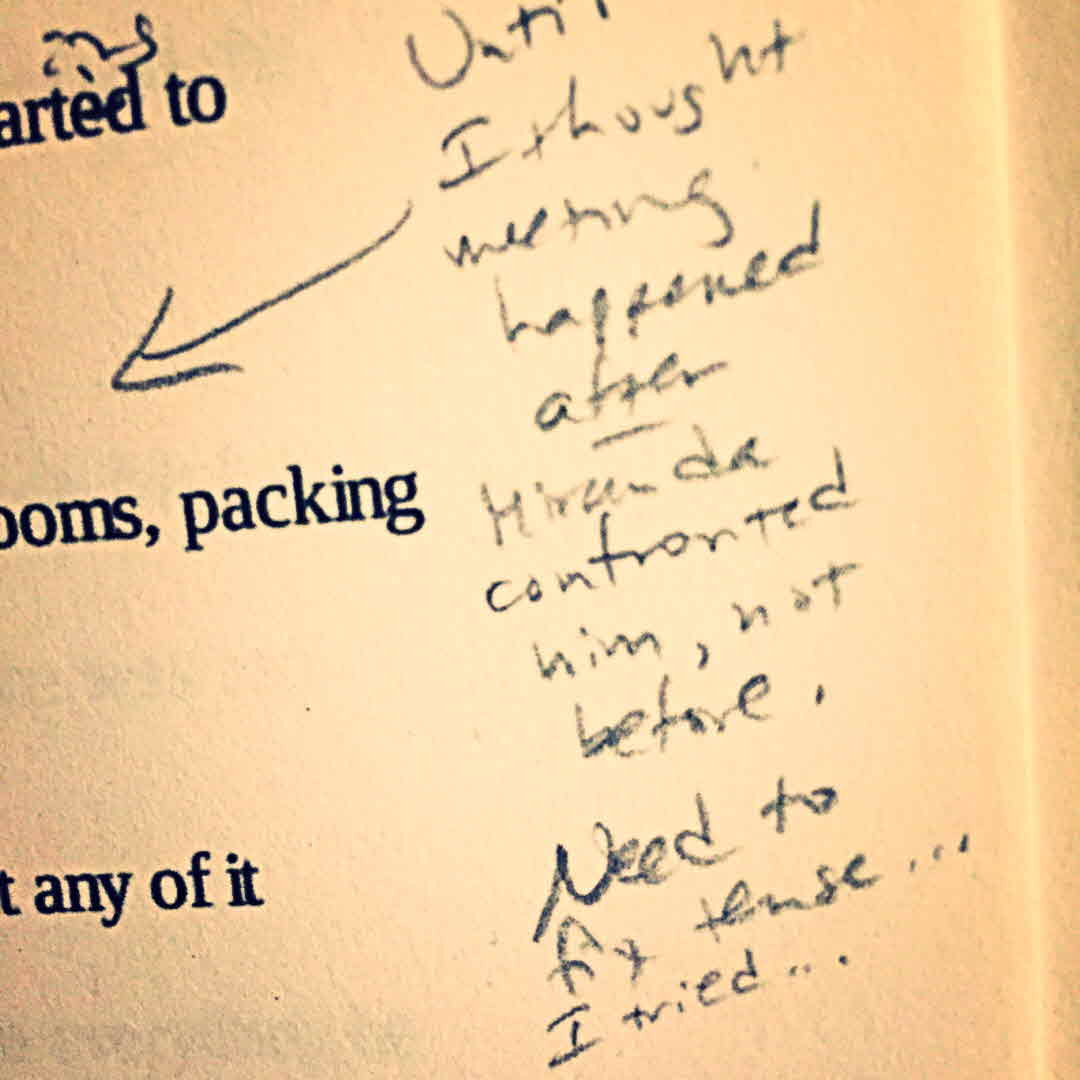 Until
arted to
I thought
meeting
happened
after
ooms, packing
Miranda
confronted
him, not
before.
Need to
t any of it
fix tense...
I tried...